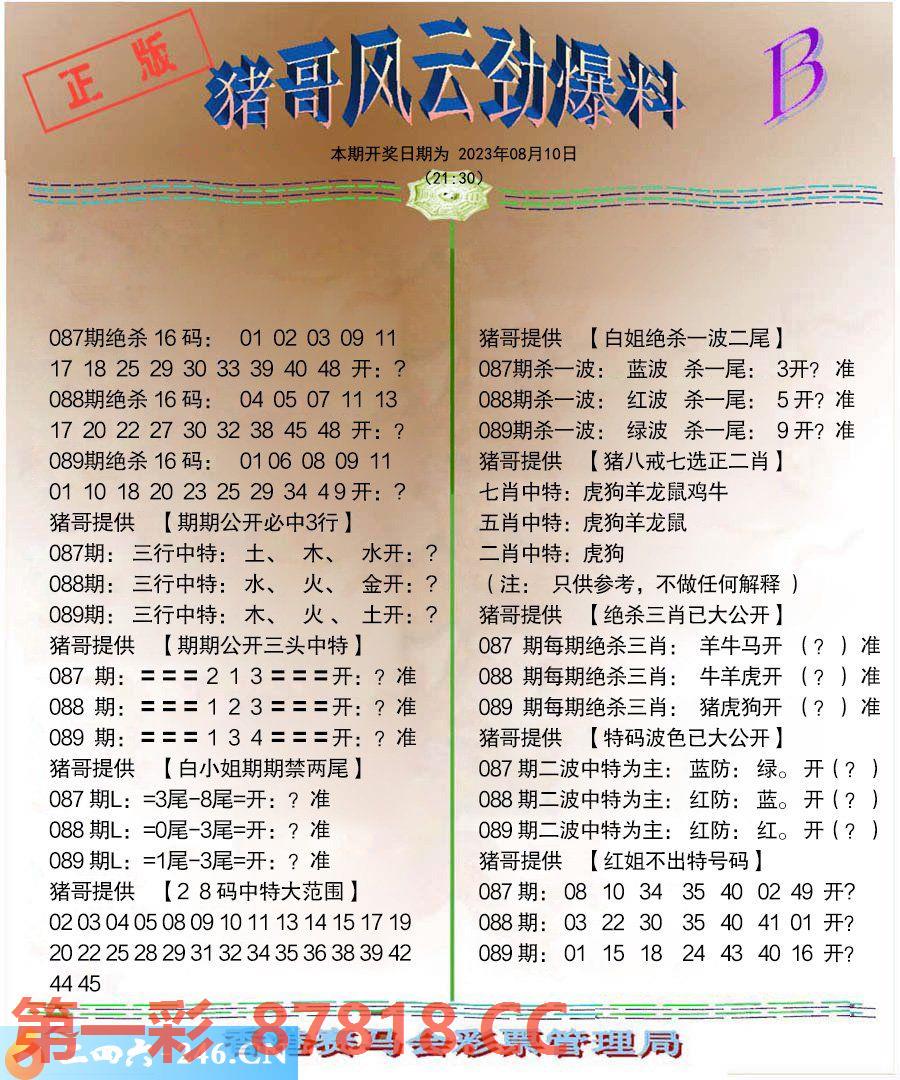 正版
猪哥风云劲爆料
B
本期开奖日期为 2023年08月10日
(21:30)
087期绝杀 16 码： 01 02 03 09 11
17 18 25 29 30 33 39 40 48 开：?
088期绝杀 16 码： 04 05 07 11 13
17 20 22 27 30 32 38 45 48 开：?
089期绝杀 16 码： 01 06 08 09 11
01 10 18 20 23 25 29 34 4 9 开：?
猪哥提供 【期期公开必中3行】
087期：三行中特：土、 木、 水开：?
088期：三行中特：水、 火、 金开：?
089期：三行中特：木、 火 、 土开：?
猪哥提供 【期期公开三头中特】
087 期：===２１３===开：? 准
088 期：===１２３===开：? 准
089 期：===１３４===开：? 准
猪哥提供 【白小姐期期禁两尾】
087 期L：=3尾-8尾=开：? 准
088 期L：=0尾-3尾=开：? 准
089 期L：=1尾-3尾=开：? 准
猪哥提供 【２８码中特大范围】
02 03 04 05 08 09 10 11 13 14 15 17 19
20 22 25 28 29 31 32 34 35 36 38 39 42
44 45
猪哥提供 【白姐绝杀一波二尾】
087期杀一波： 蓝波 杀一尾： 3开? 准
088期杀一波： 红波 杀一尾： 5 开? 准
089期杀一波： 绿波 杀一尾： 9 开? 准
猪哥提供 【猪八戒七选正二肖】
七肖中特：虎狗羊龙鼠鸡牛
五肖中特：虎狗羊龙鼠
二肖中特：虎狗
（注： 只供参考，不做任何解释 ）
猪哥提供 【绝杀三肖已大公开】
087 期每期绝杀三肖： 羊牛马开 （? ）准
088 期每期绝杀三肖： 牛羊虎开 （? ）准
089 期每期绝杀三肖： 猪虎狗开 （? ）准
猪哥提供 【特码波色已大公开】
087 期二波中特为主：蓝防：绿。开 (? )
088 期二波中特为主：红防：蓝。开 (? )
089 期二波中特为主：红防：红。开 (? )
猪哥提供 【红姐不出特号码】
087 期： 08 10 34 35 40 02 49 开?
088 期： 03 22 30 35 40 41 01 开?
089 期： 01 15 18 24 43 40 16 开?
第一彩 87818.CC
二四六 246.CN
香港赛马会彩票管理局